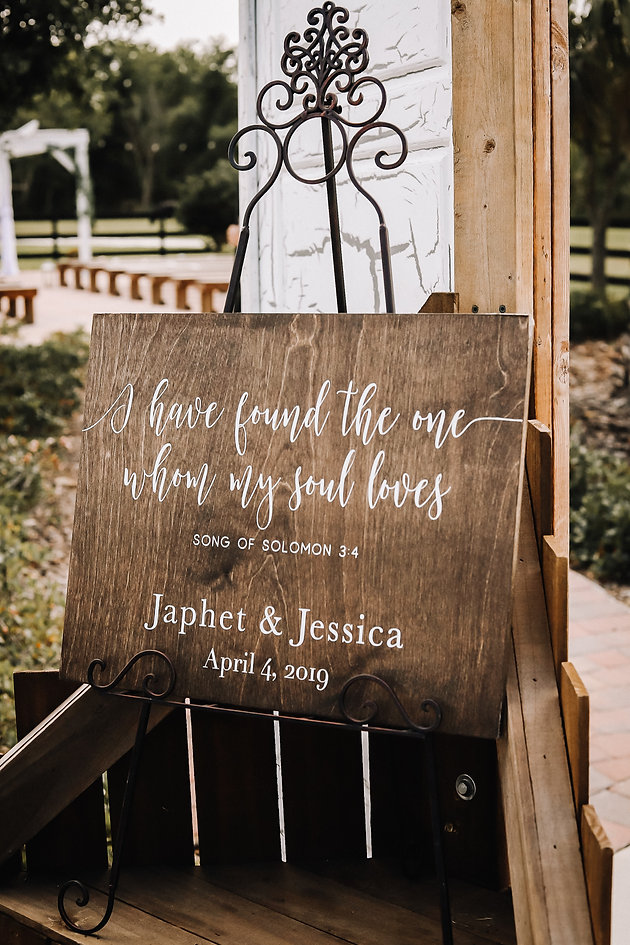 I have found the one
whom my soul loves
SONG OF SOLOMON 3:4
Japhet & Jessica
April 4, 2019